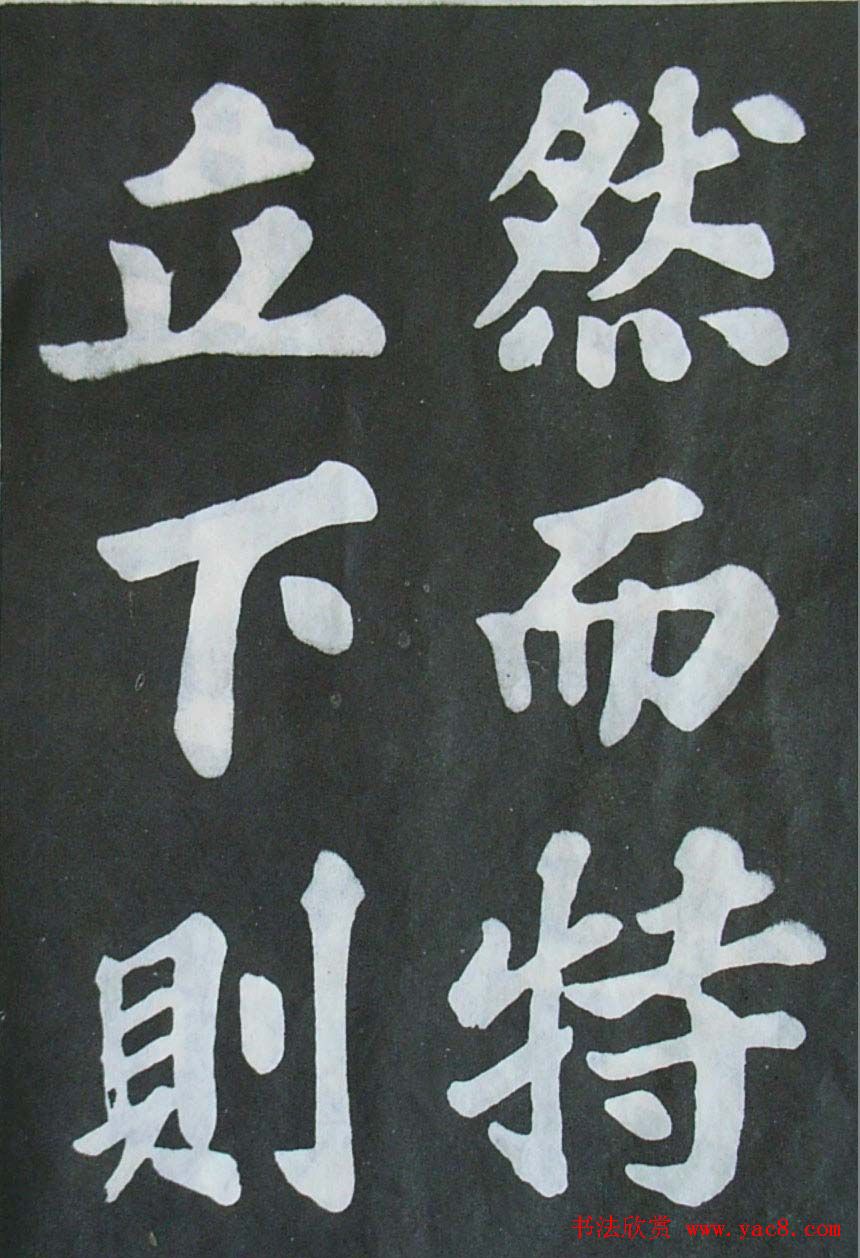 然而特
立下則
书法欣赏 www.yac8.com